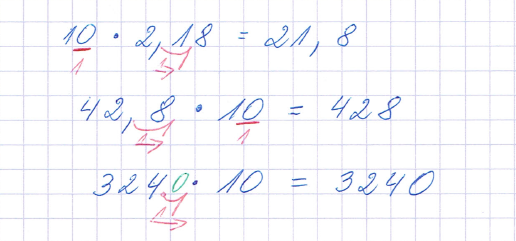 10 · 2,18 = 21,8
1 1→
42,8 · 10 = 428
1→ 1
324,0 · 10 = 3240
1→